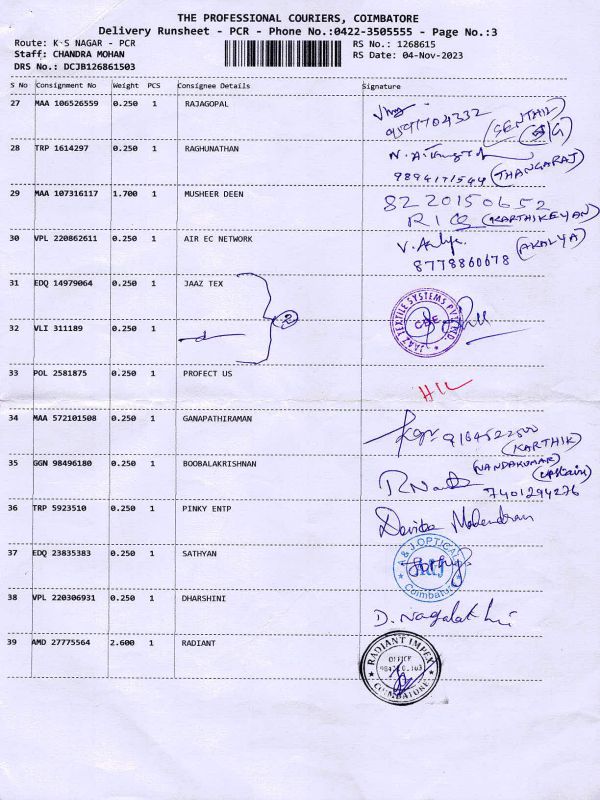 THE PROFESSIONAL COURIERS, COIMBATORE
Delivery Runsheet - PCR - Phone No.:0422-3505555 - Page No.:3
Route: K S NAGAR - PCR
RS No.: 1268615
Staff: CHANDRA MOHAN
RS Date: 04-Nov-2023
DRS No.: DCJB126861503
S No Consignment No Weight PCS Consignee Details Signature
27 MAA 106526559 0.250 1 RAJAGOPAL
9591704332 (SENTHIL)
28 TRP 1614297 0.250 1 RAGHUNATHAN
9894171544 (THANGARAJ)
29 MAA 107316117 1.700 1 MUSHEER DEEN 8220150652
(KARTHIKEYAN)
30 VPL 220862611 0.250 1 AIR EC NETWORK (AKALYA)
8778860678
31 EDQ 14979064 0.250 1 JAAZ TEX
2
JAAZ TEXTILE SYSTEMS PVT. LTD.
CBE
32 VLI 311189 0.250 1
33 POL 2581875 0.250 1 PROFECT US
34 MAA 572101508 0.250 1 GANAPATHIRAMAN
(KARTHIK)
35 GGN 98496180 0.250 1 BOOBALAKRISHNAN (NANDAKUMAR)
7401294276
36 TRP 5923510 0.250 1 PINKY ENTP
37 EDQ 23835383 0.250 1 SATHYAN
& J.OPTICAL
Coimbatore
38 VPL 220306931 0.250 1 DHARSHINI D. Nagalakshmi
39 AMD 27775564 2.600 1 RADIANT
RADIANT IMPEX
OFFICE
COIMBATORE